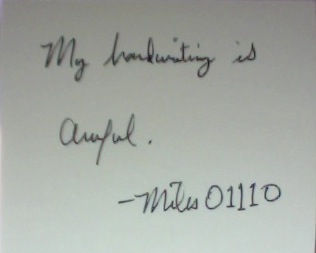 My handwriting is
awful.
-Miles01110